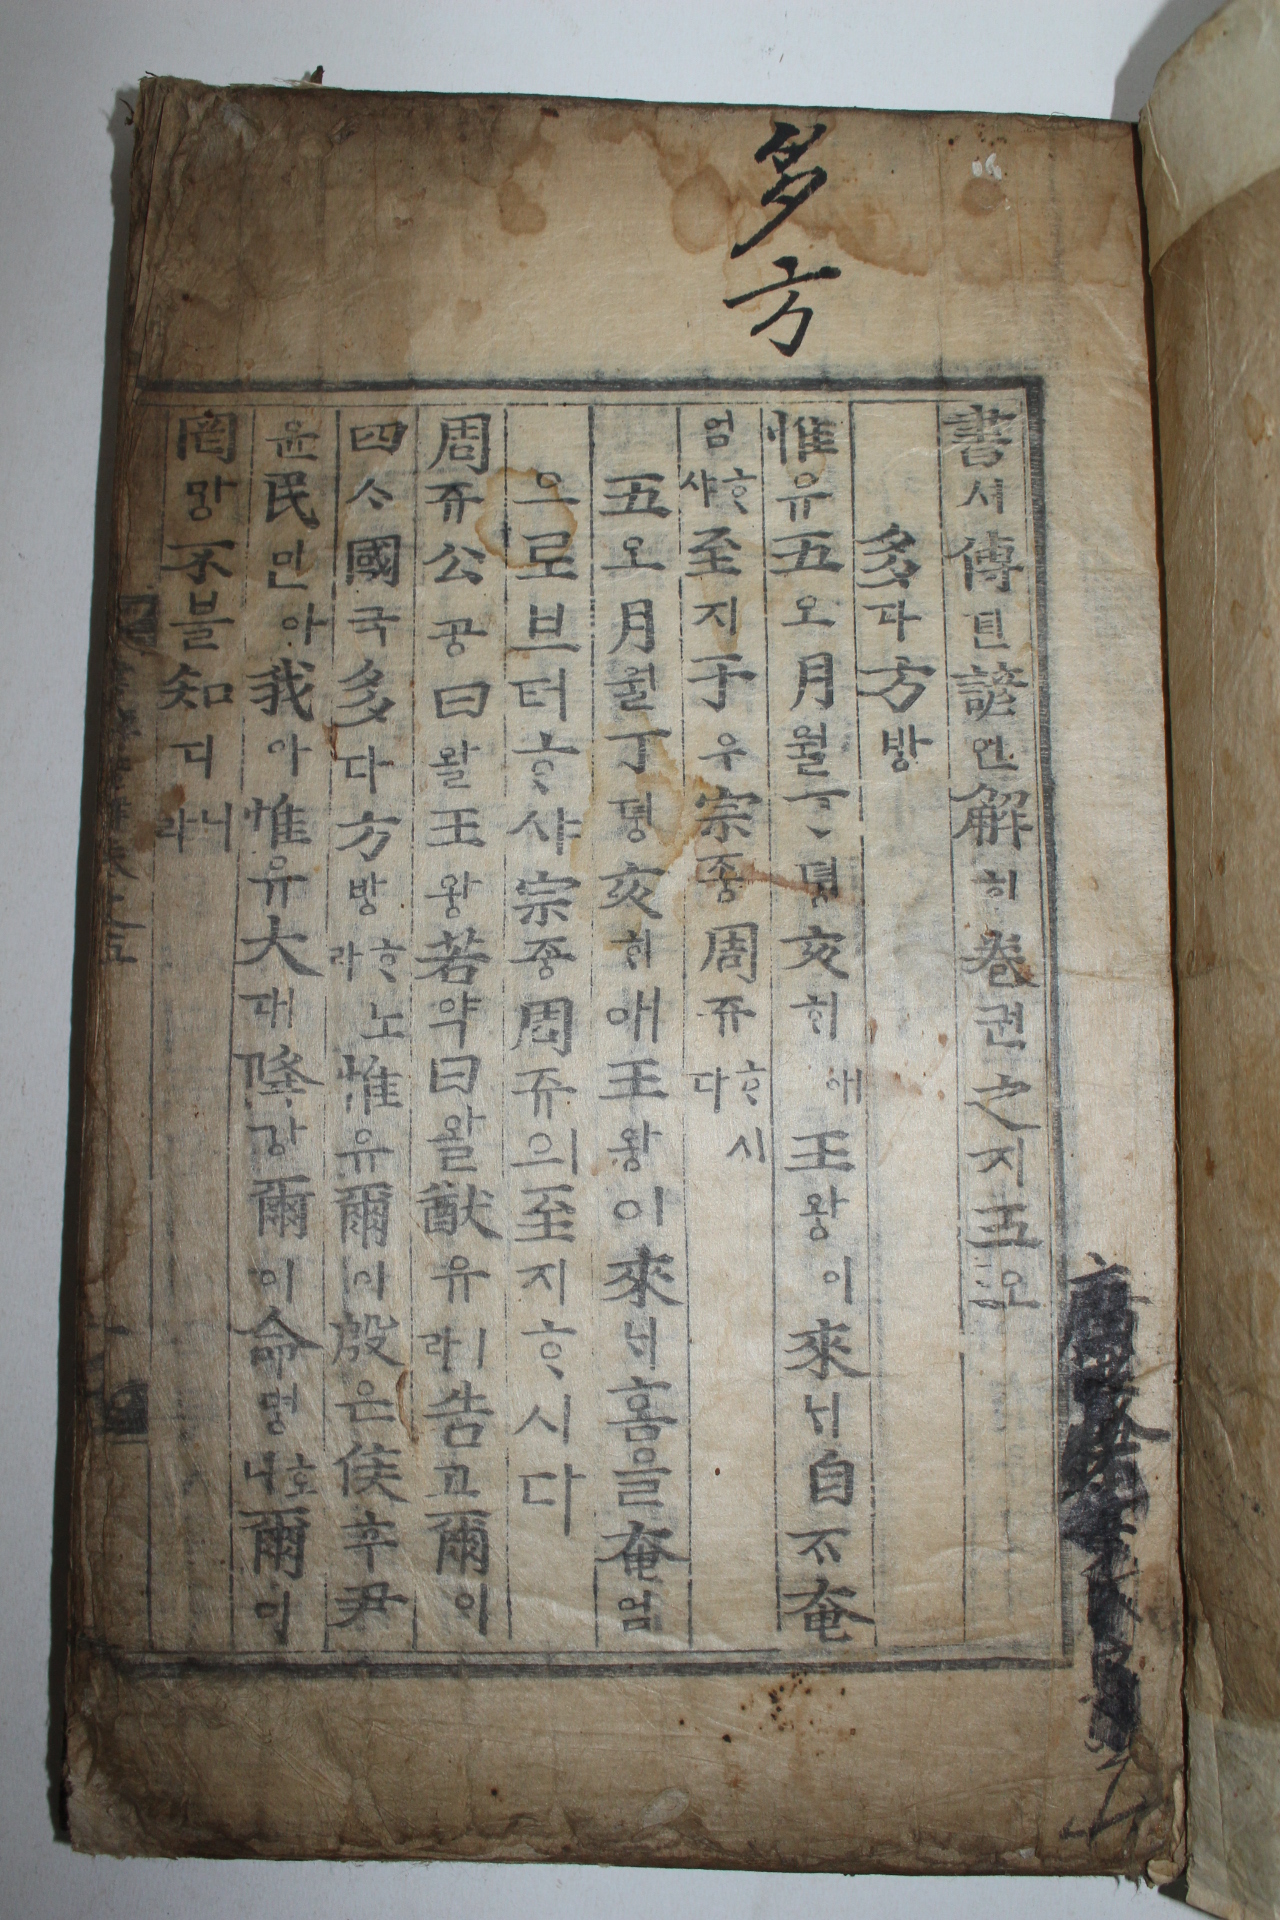 多方
書셔傳뎐諺언解ᄒᆡ卷권之지五오
多다方방
惟유五오月월丁뎡亥ᄒᆡ애王왕이來ᄅᆡ自ᄌᆞ奄
엄ᄒᆞ샤至지于우宗종周쥬ᄒᆞ시다
五오月월丁뎡亥ᄒᆡ애王왕이來ᄅᆡ홈을奄엄
으로브터ᄒᆞ샤宗종周쥬의至지ᄒᆞ시다
周쥬公공曰왈王왕若약曰왈猷유ㅣ라告고爾이
四ᄉᆞ國국多다方방ᄒᆞ노라惟유爾이殷은侯후尹
윤民민아我아惟유大대降강爾이命명호니爾이
罔망不블知디니라